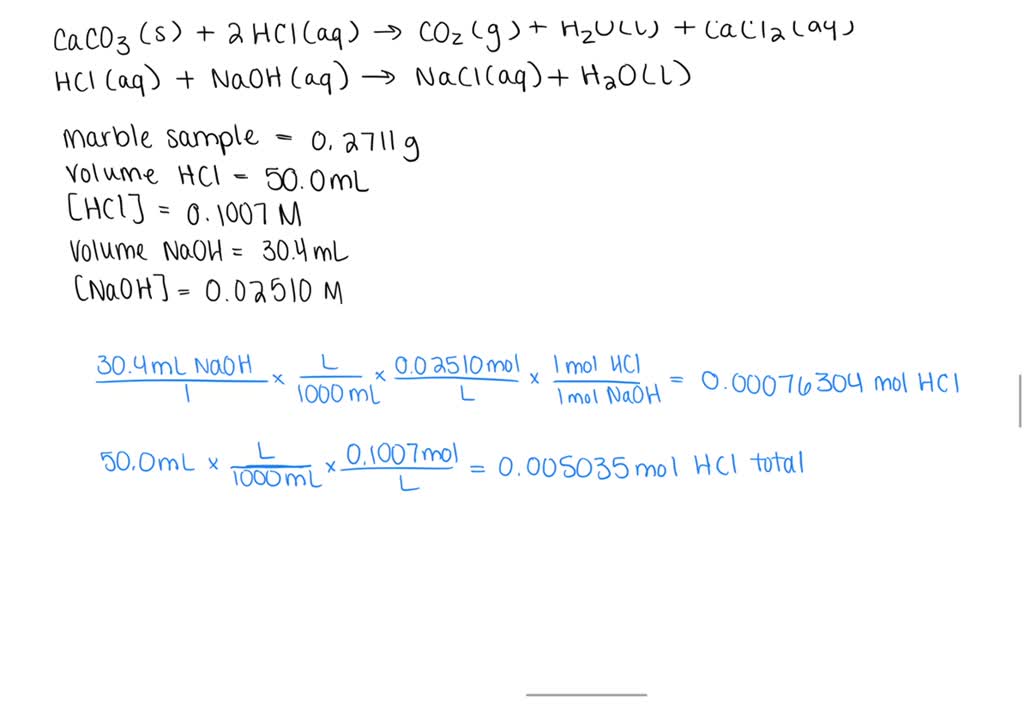 CaCO₃(s) + 2HCl(aq) → CO₂(g) + H₂O(l) + CaCl₂(aq)
HCl(aq) + NaOH(aq) → NaCl(aq) + H₂O(l)
marble sample = 0.2711g
volume HCl = 50.0mL
[HCl] = 0.1007 M
volume NaOH = 30.4mL
[NaOH] = 0.02510 M
30.4mL NaOH/1 × L/1000mL × 0.02510mol/L × 1mol HCl/1mol NaOH = 0.00076304 mol HCl
50.0mL × L/1000mL × 0.1007mol/L = 0.005035mol HCl total